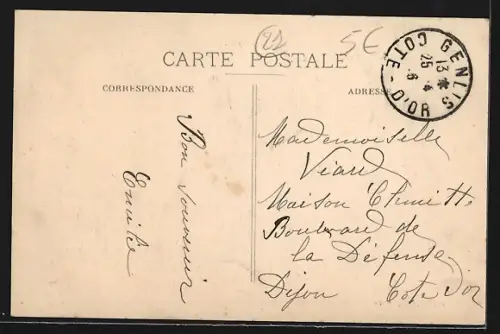 21
5€
CARTE POSTALE
CORRESPONDANCE
ADRESSE
GENLIS
13 *
25 - 4
6
COTE-D'OR
Bon souvenir
Emile
Mademoiselle
Viard
Maison
Boulevard de
la Défense
Dijon Cote d'or